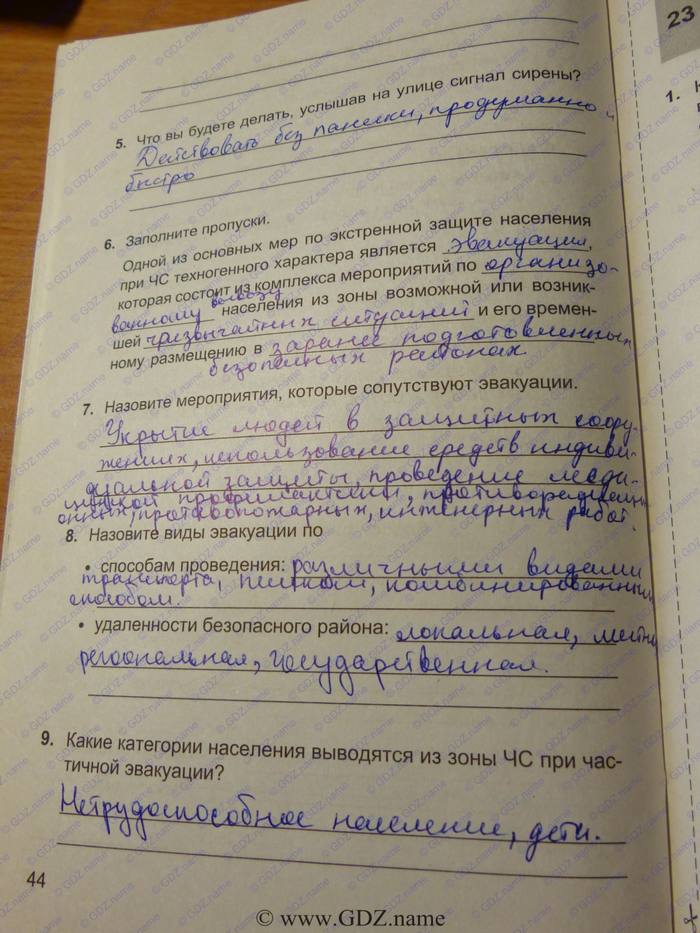 23
1.
5. Что вы будете делать, услышав на улице сигнал сирены?
Действовать без паники, продуманно и
быстро
6. Заполните пропуски.
Одной из основных мер по экстренной защите населения
при ЧС техногенного характера является эвакуация,
которая состоит из комплекса мероприятий по организо-
ванному вывозу населения из зоны возможной или возник-
шей чрезвычайных ситуаций и его времен-
ному размещению в заранее подготовленных
безопасных районах.
7. Назовите мероприятия, которые сопутствуют эвакуации.
Укрытие людей в защитных соору-
жениях, использование средств индиви-
дуальной защиты, проведение меди-
цинской профилактики, противорадиаци-
онных, противопожарных, инженерных работ.
8. Назовите виды эвакуации по
• способам проведения: различными видами
транспорта, пешком, комбинированным
способом.
• удаленности безопасного района: локальная, местная
региональная, государственная.
9. Какие категории населения выводятся из зоны ЧС при час-
тичной эвакуации?
Нетрудоспособное население, дети.
44
© www.GDZ.name